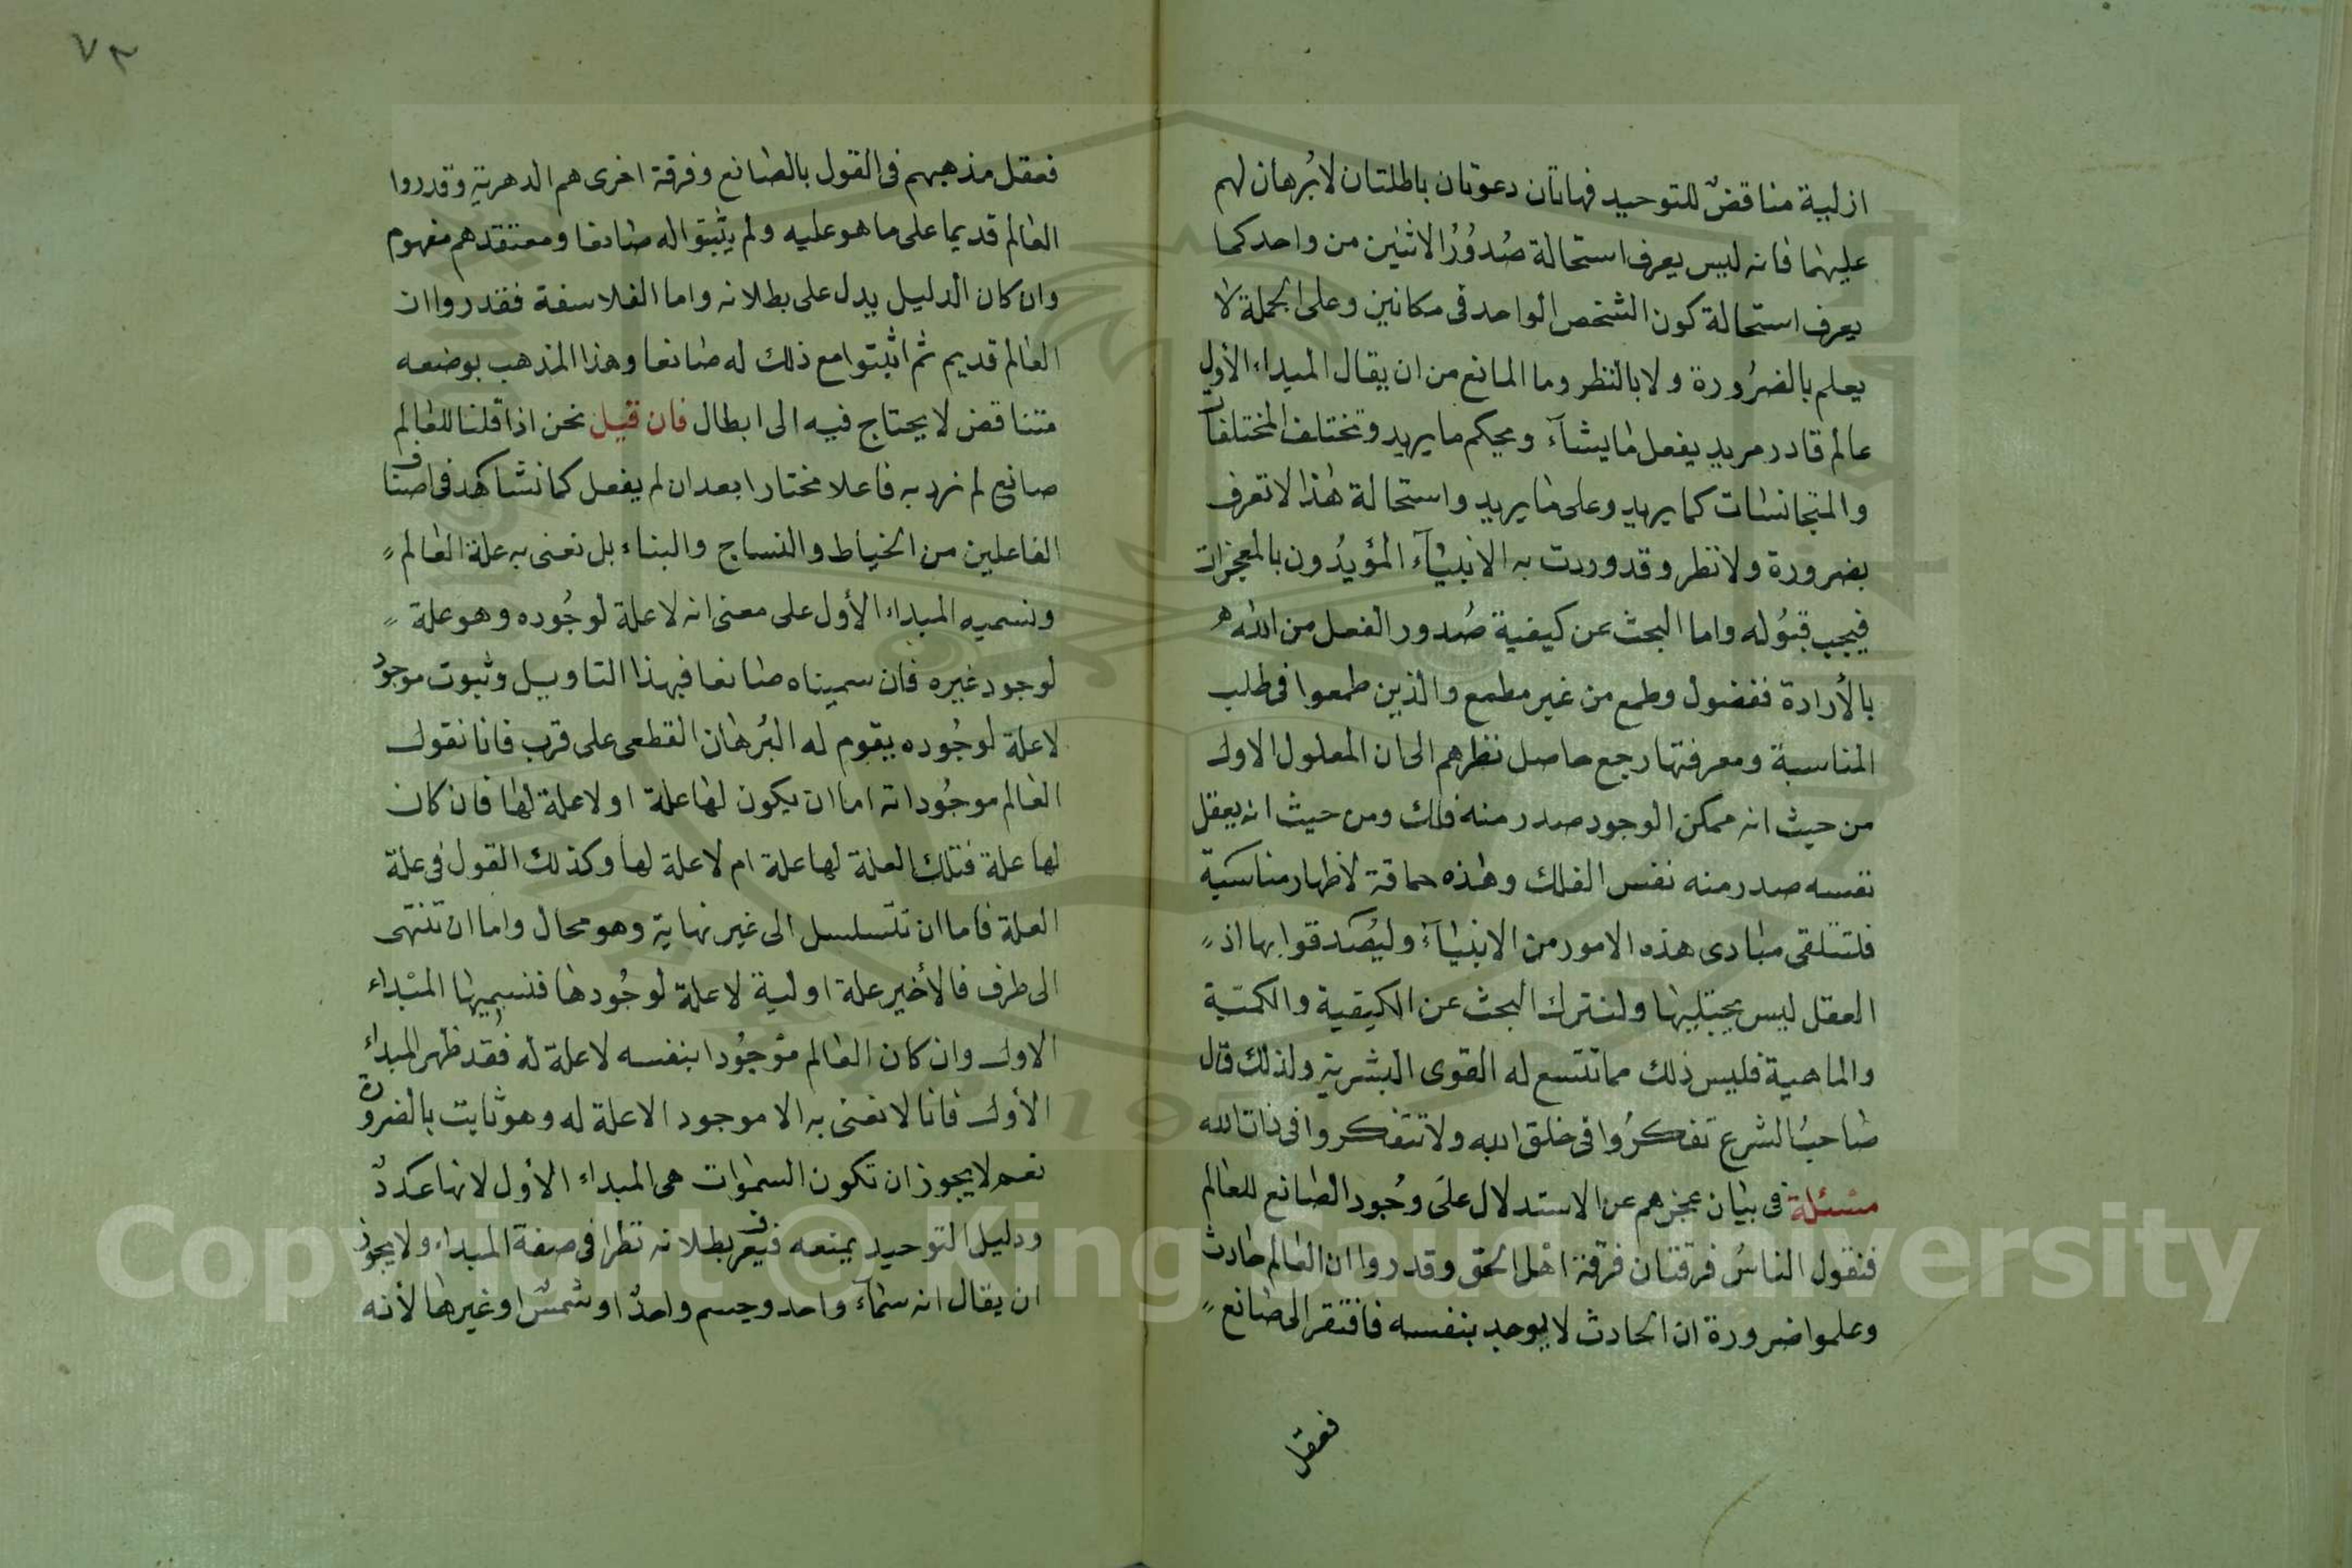 ازلية مناقض للتوحيد فهاتان دعوتان باطلتان لا برهان لهم
عليهما فانه ليس يعرف استحالة صدور الاثنين من واحد كما
يعرف استحالة كون الشخص الواحد فى مكانين وعلى الجملة لا
يعلم بالضرورة ولا بالنظر وما المانع من ان يقال المبداء الأول
عالم قادر مريد يفعل ما يشآء ويحكم ما يريد وتختلف المختلفات
والمتجانسات كما يريد وعلى ما يريد واستحالة هذا لا تعرف
بضرورة ولا نظر وقد وردت به الانبيآء المؤيدون بالمعجزات
فيجب قبوله واما البحث عن كيفية صدور الفعل من الله
بالأرادة ففضول وطمع من غير مطمع والذين طمعوا فى طلب
المناسبة ومعرفتها رجع حاصل نظرهم الى ان المعلول الاول
من حيث انه ممكن الوجود صدر منه فلك ومن حيث انه يعقل
نفسه صدر منه نفس الفلك وهذه حماقة لاظهار مناسبة
فلتتلقى مبادى هذه الامور من الانبيآء وليصدقوا بها اذ
العقل ليس يحيلها ولنترك البحث عن الكيفية والكمية
والماهية فليس ذلك مما تتسع له القوى البشرية ولذلك قال
صاحب الشرع تفكروا فى خلق الله ولا تتفكروا فى ذات الله
مسئلة فى بيان عجزهم عن الاستدلال على وجود الصانع للعالم
فنقول الناس فرقتان فرقة اهل الحق وقدروا ان العالم حادث
وعلموا ضرورة ان الحادث لا يوجد بنفسه فافتقر الى صانع
فعقل
٧٣
فعقل مذهبهم فى القول بالصانع وفرقة اخرى هم الدهرية وقدروا
العالم قديما على ما هو عليه ولم يثبتوا له صانعا ومعتقدهم مفهوم
وان كان الدليل يدل على بطلانه واما الفلاسفة فقدروا ان
العالم قديم ثم اثبتوا مع ذلك له صانعا وهذا المذهب بوضعه
متناقض لا يحتاج فيه الى ابطال فان قيل نحن اذا قلنا للعالم
صانع لم نرد به فاعلا مختارا بعد ان لم يفعل كما نشاهد فى اصناف
الفاعلين من الخياط والنساج والبناء بل نعنى به علة العالم
ونسميه المبداء الأول على معنى انه لا علة لوجوده وهو علة
لوجود غيره فان سميناه صانعا فبهذا التاويل وثبوت موجود
لا علة لوجوده يقوم له البرهان القطعى على قرب فانا نقول
العالم موجوداته اما ان يكون لها علة او لا علة لها فان كان
لها علة فتلك العلة لها علة ام لا علة لها وكذلك القول فى علة
العلة فاما ان تتسلسل الى غير نهاية وهو محال واما ان تنتهى
الى طرف فالأخير علة اولية لا علة لوجودها فنسميها المبداء
الاول وان كان العالم موجودا بنفسه لا علة له فقد ظهر المبداء
الأول فانا لا نعنى به الا موجود الاعلة له وهو ثابت بالضرورة
نعم لا يجوز ان تكون السموات هى المبداء الأول لانها عدد
ودليل التوحيد يمنعه فيعرف بطلانه نظرا فى صفة المبداء ولا يجوز
ان يقال انه سمآء واحد وجسم واحد او شمس او غيرها لأنه
Copyright © King Saud University